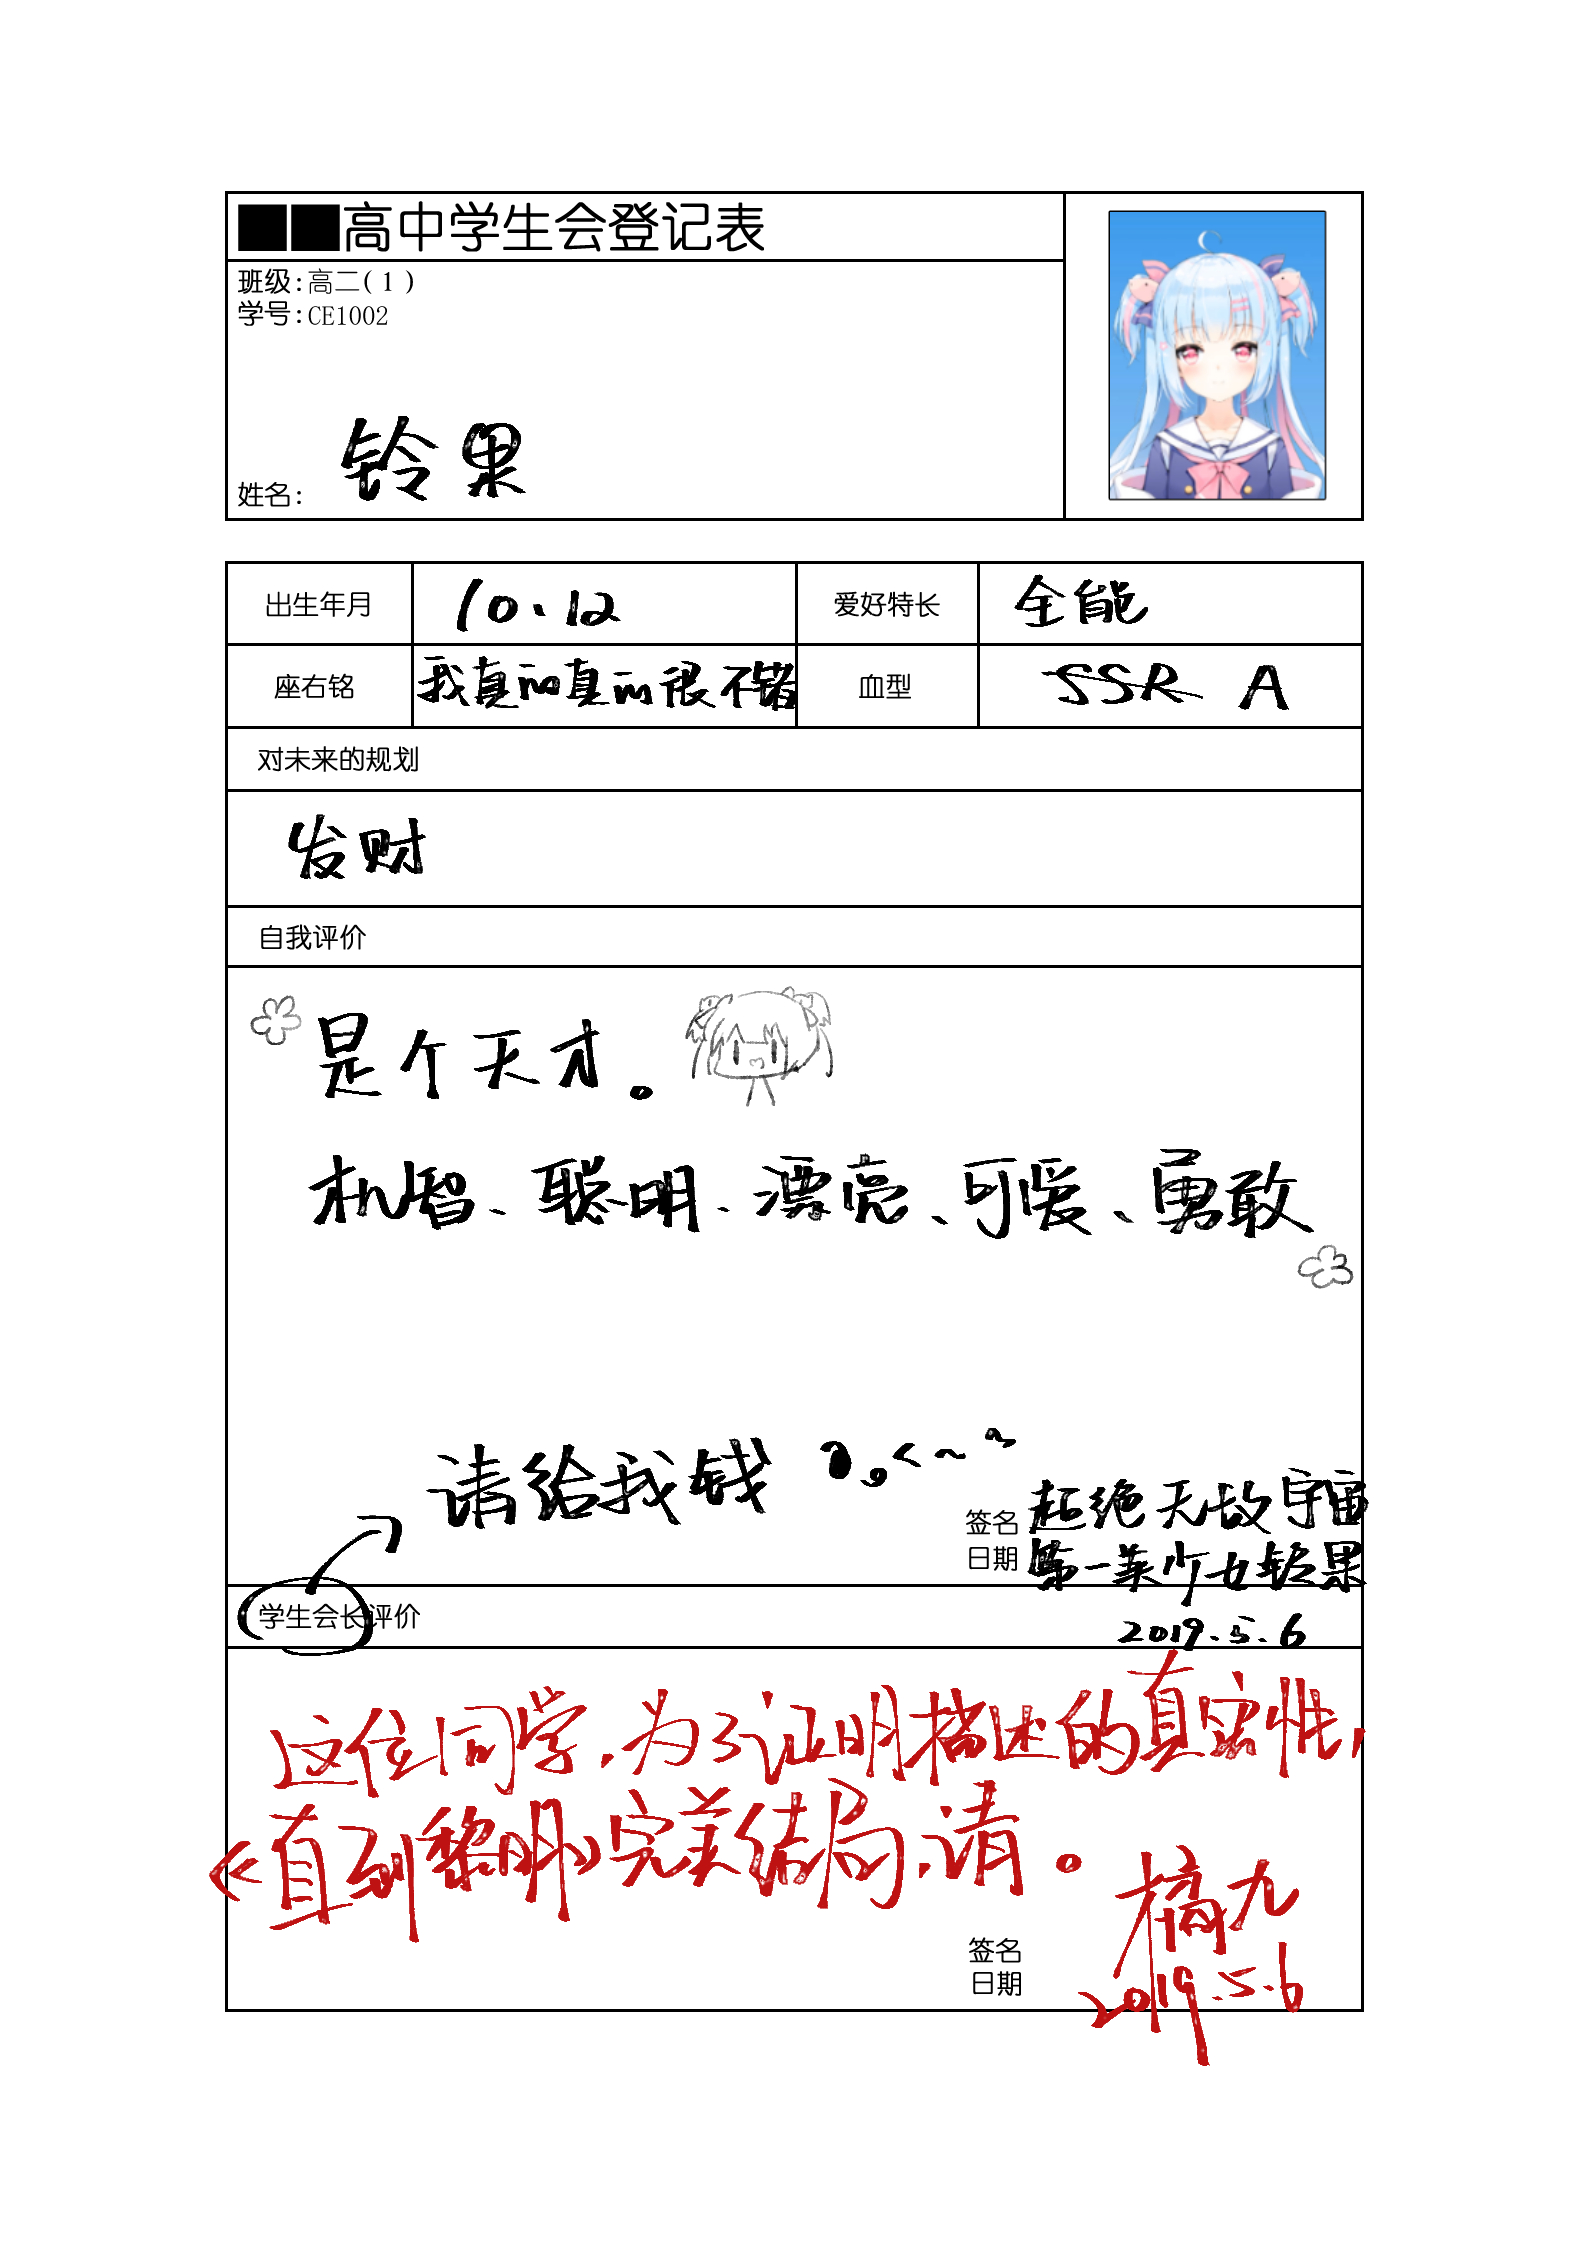 ■■高中学生会登记表
班级：高二(1)
学号：CE1002
姓名： 铃果
出生年月 10.12 爱好特长 全能
座右铭 我真的真的很不错 血型 SSR A
对未来的规划
发财
自我评价
是个天才。
机智、聪明、漂亮、可爱、勇敢
请给我钱
签名 超绝无敌宇宙
日期 第一美少女铃果
学生会长评价 2019.5.6
这位同学，为了证明描述的真实性，
《直到黎明》完美结局，请。
签名 橘九
日期 2019.5.6